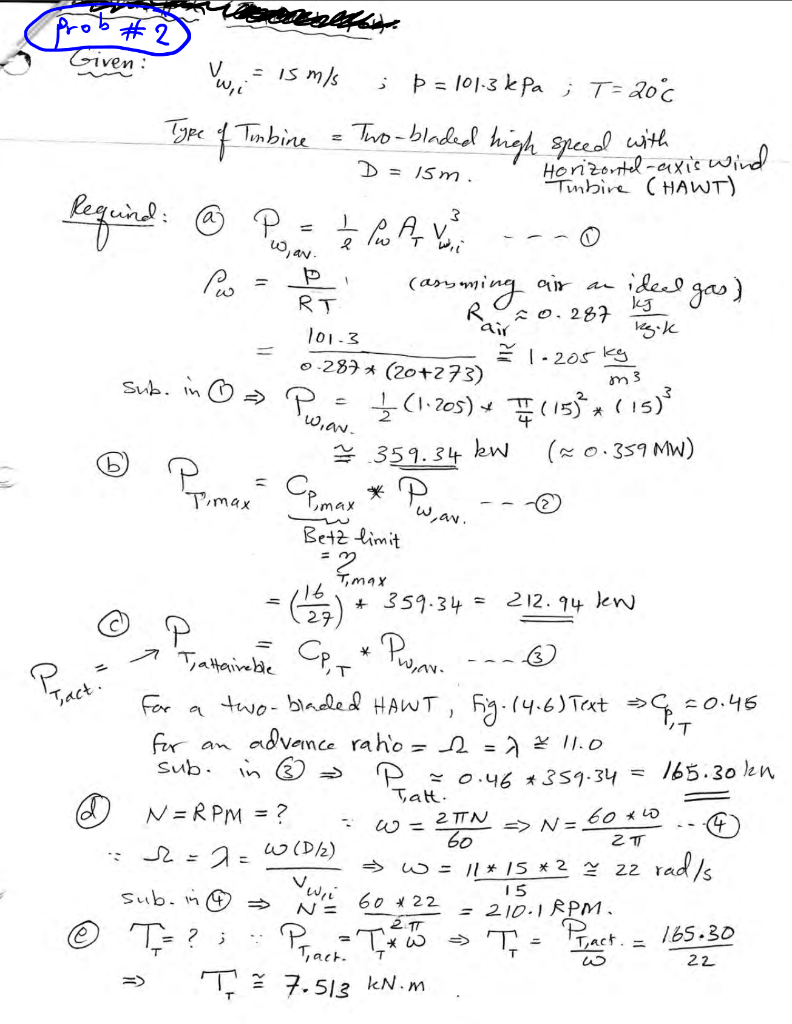 Prob # 2
Given: V_w,i = 15 m/s ; p = 101.3 kPa ; T = 20°C
Type of Turbine = Two-bladed high speed with
D = 15m. Horizontal-axis Wind
Turbine (HAWT)
Required: (a) P_w,av. = 1/2 ρ_w A_T V_w,i^3 ---- (1)
ρ_w = p/RT (assuming air an ideal gas)
R_air ≈ 0.287 kJ/kg.k
= 101.3 / 0.287 * (20+273) ≅ 1.205 kg/m3
Sub. in (1) ⇒ P_w,av. = 1/2 (1.205) * π/4 (15)^2 * (15)^3
≅ 359.34 kW (≈ 0.359 MW)
(b) P_T,max = C_p,max * P_w,av. ---- (2)
Betz limit
= η_T,max
= (16/27) * 359.34 = 212.94 kW
(c) P_T,attaineble = C_P,T * P_w,av. ---- (3)
P_T,act. = →
For a two-bladed HAWT, Fig.(4.6) Text ⇒ C_P,T = 0.46
for an advance ratio = Ω = λ ≅ 11.0
sub. in (3) ⇒ P_T,att. ≈ 0.46 * 359.34 = 165.30 kW
(d) N = RPM = ? ∵ ω = 2πN/60 ⇒ N = 60 * ω / 2π --- (4)
∵ Ω = λ = ω(D/2) / V_w,i ⇒ ω = 11 * 15 * 2 / 15 ≅ 22 rad/s
Sub. in (4) ⇒ N = 60 * 22 / 2π = 210.1 RPM.
(e) T_T = ? ; ∵ P_T,act. = T_T * ω ⇒ T_T = P_T,act. / ω = 165.30 / 22
⇒ T_T ≅ 7.513 kN.m